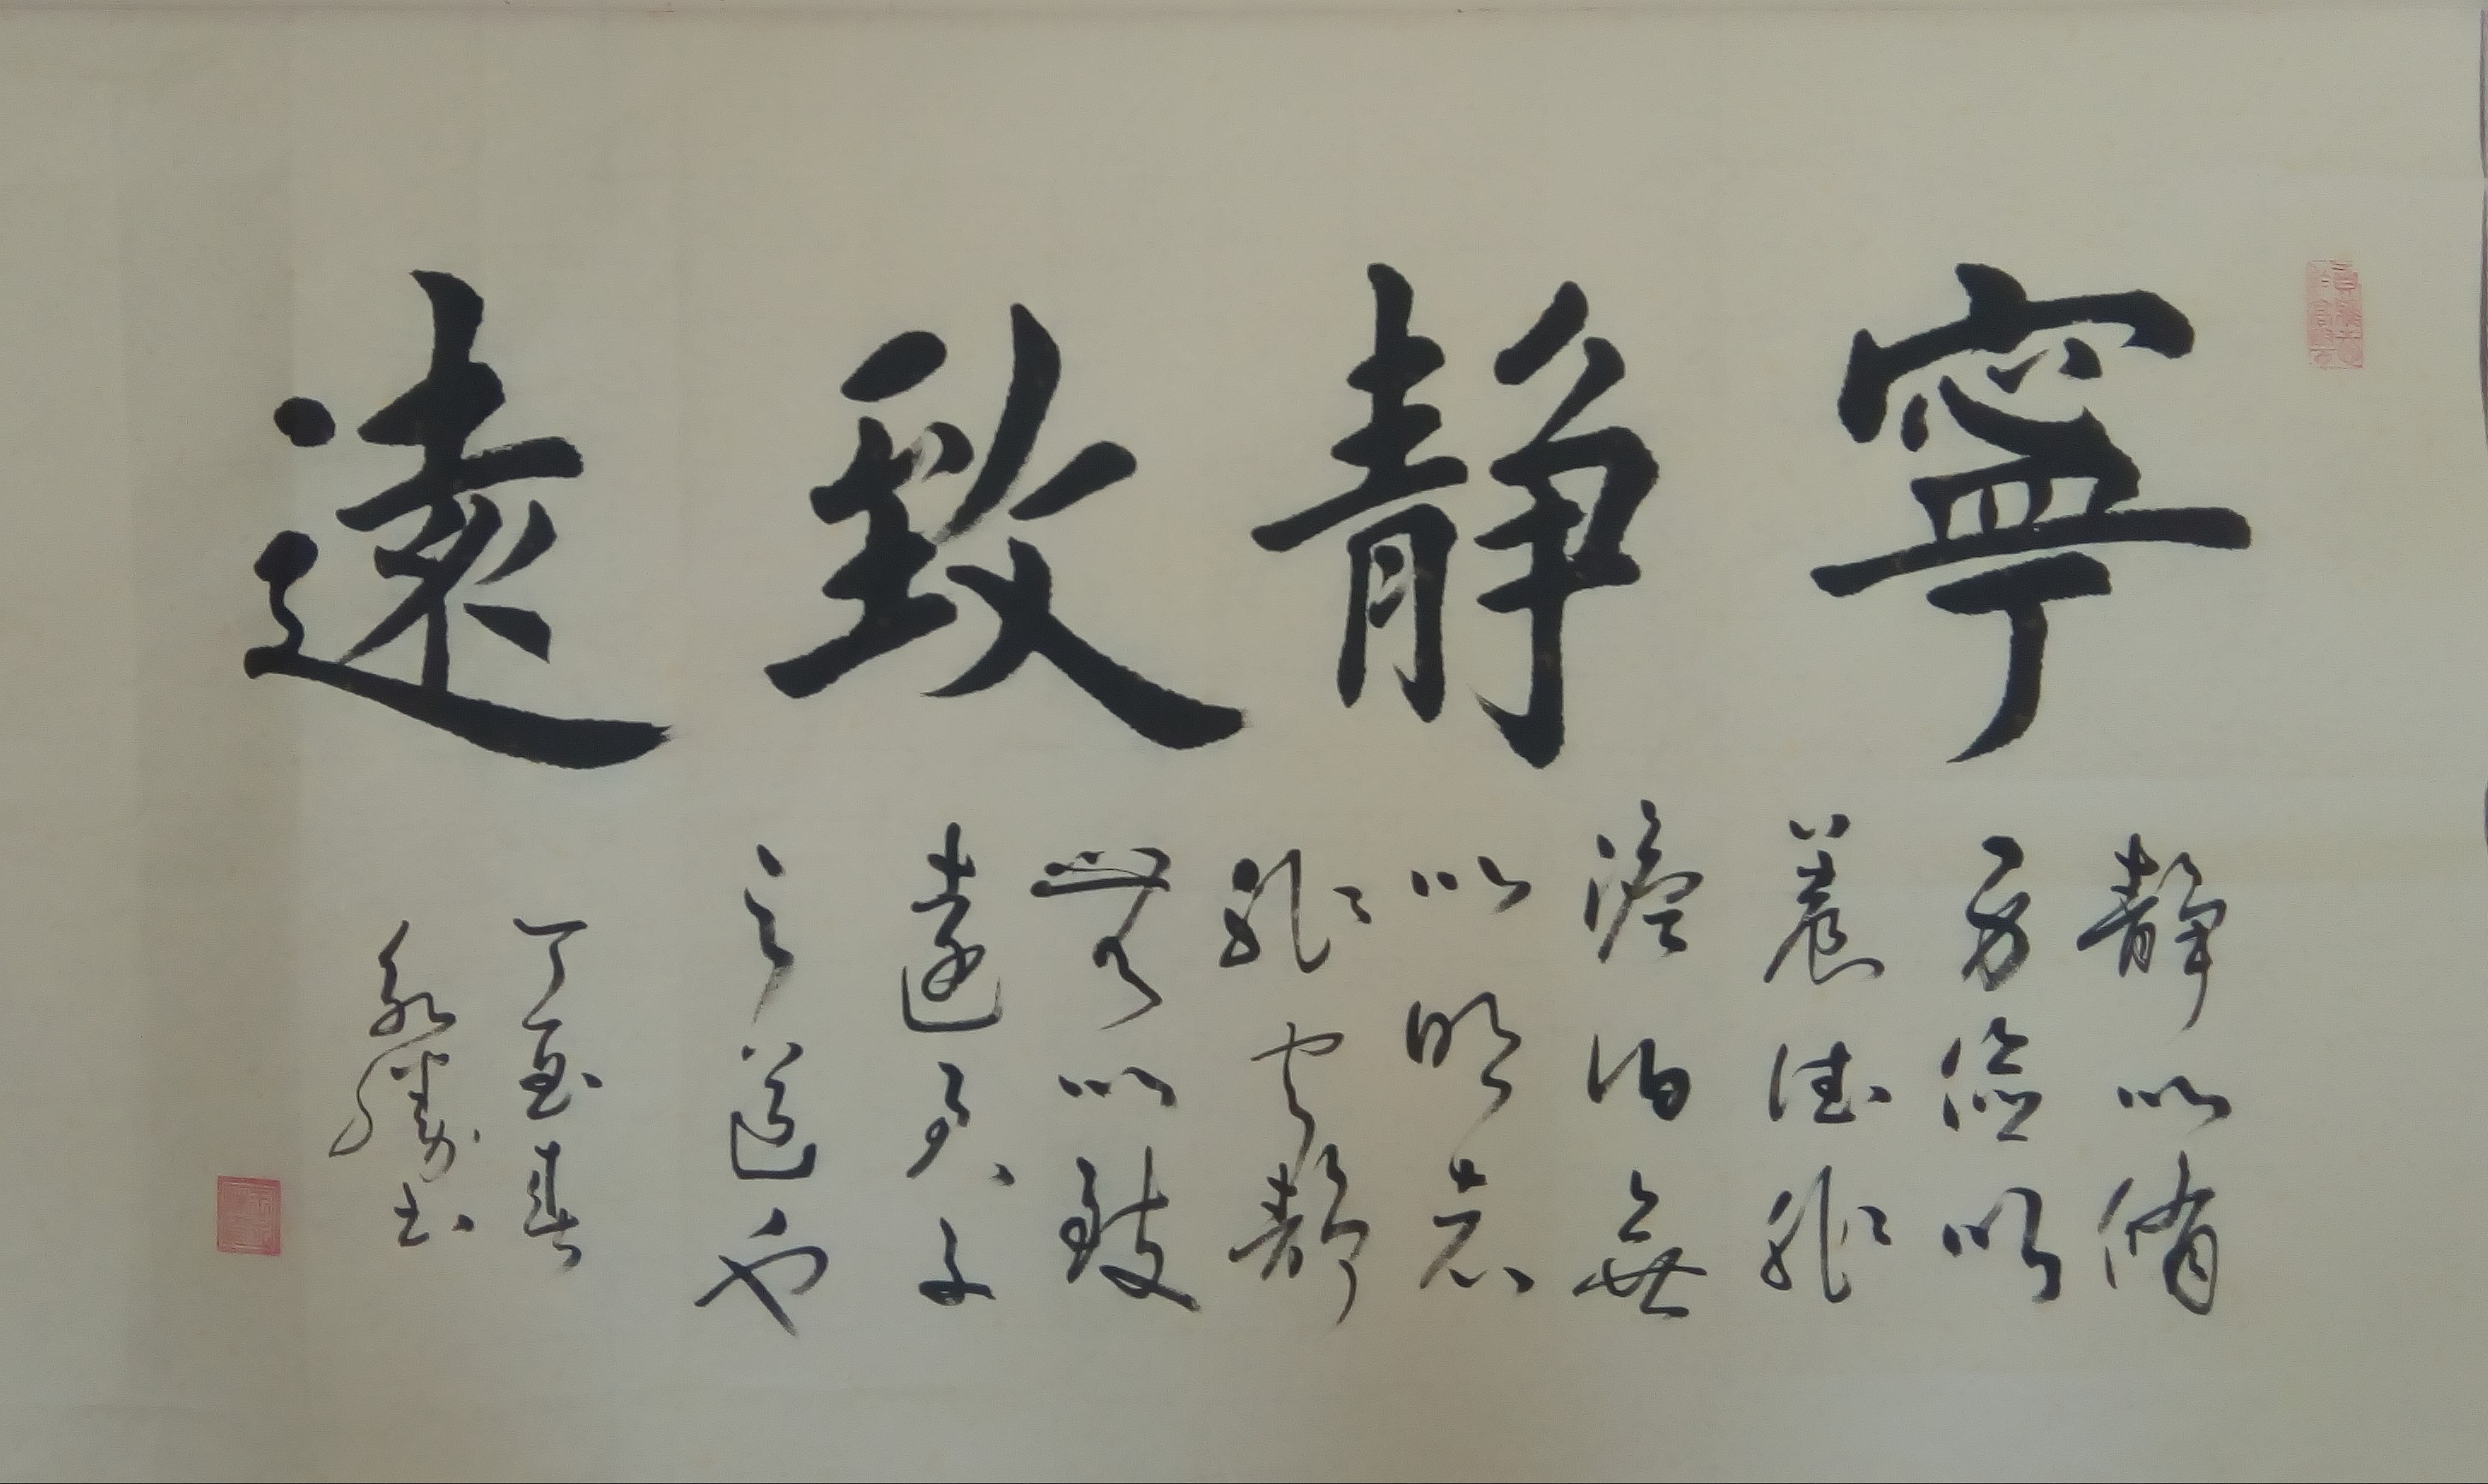 寧静致遠
靜以脩
身儉以
養德非
澹泊無
以明志
非寧靜
無以致
遠君子
之道也
丁酉春
永勝書